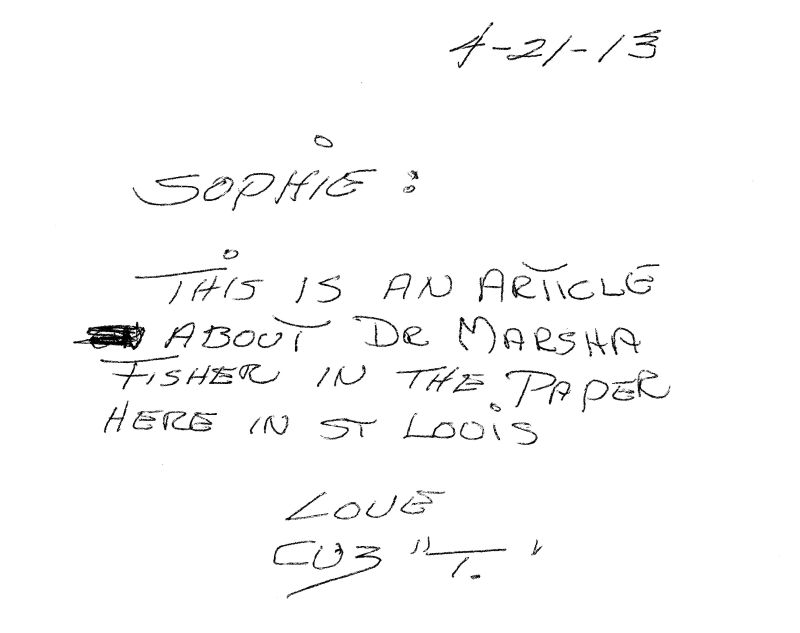 4-21-13
SOPHIE:
THIS IS AN ARTICLE
ABOUT DR MARSHA
FISHER IN THE PAPER
HERE IN ST LOUIS
LOVE
CUZ "T."